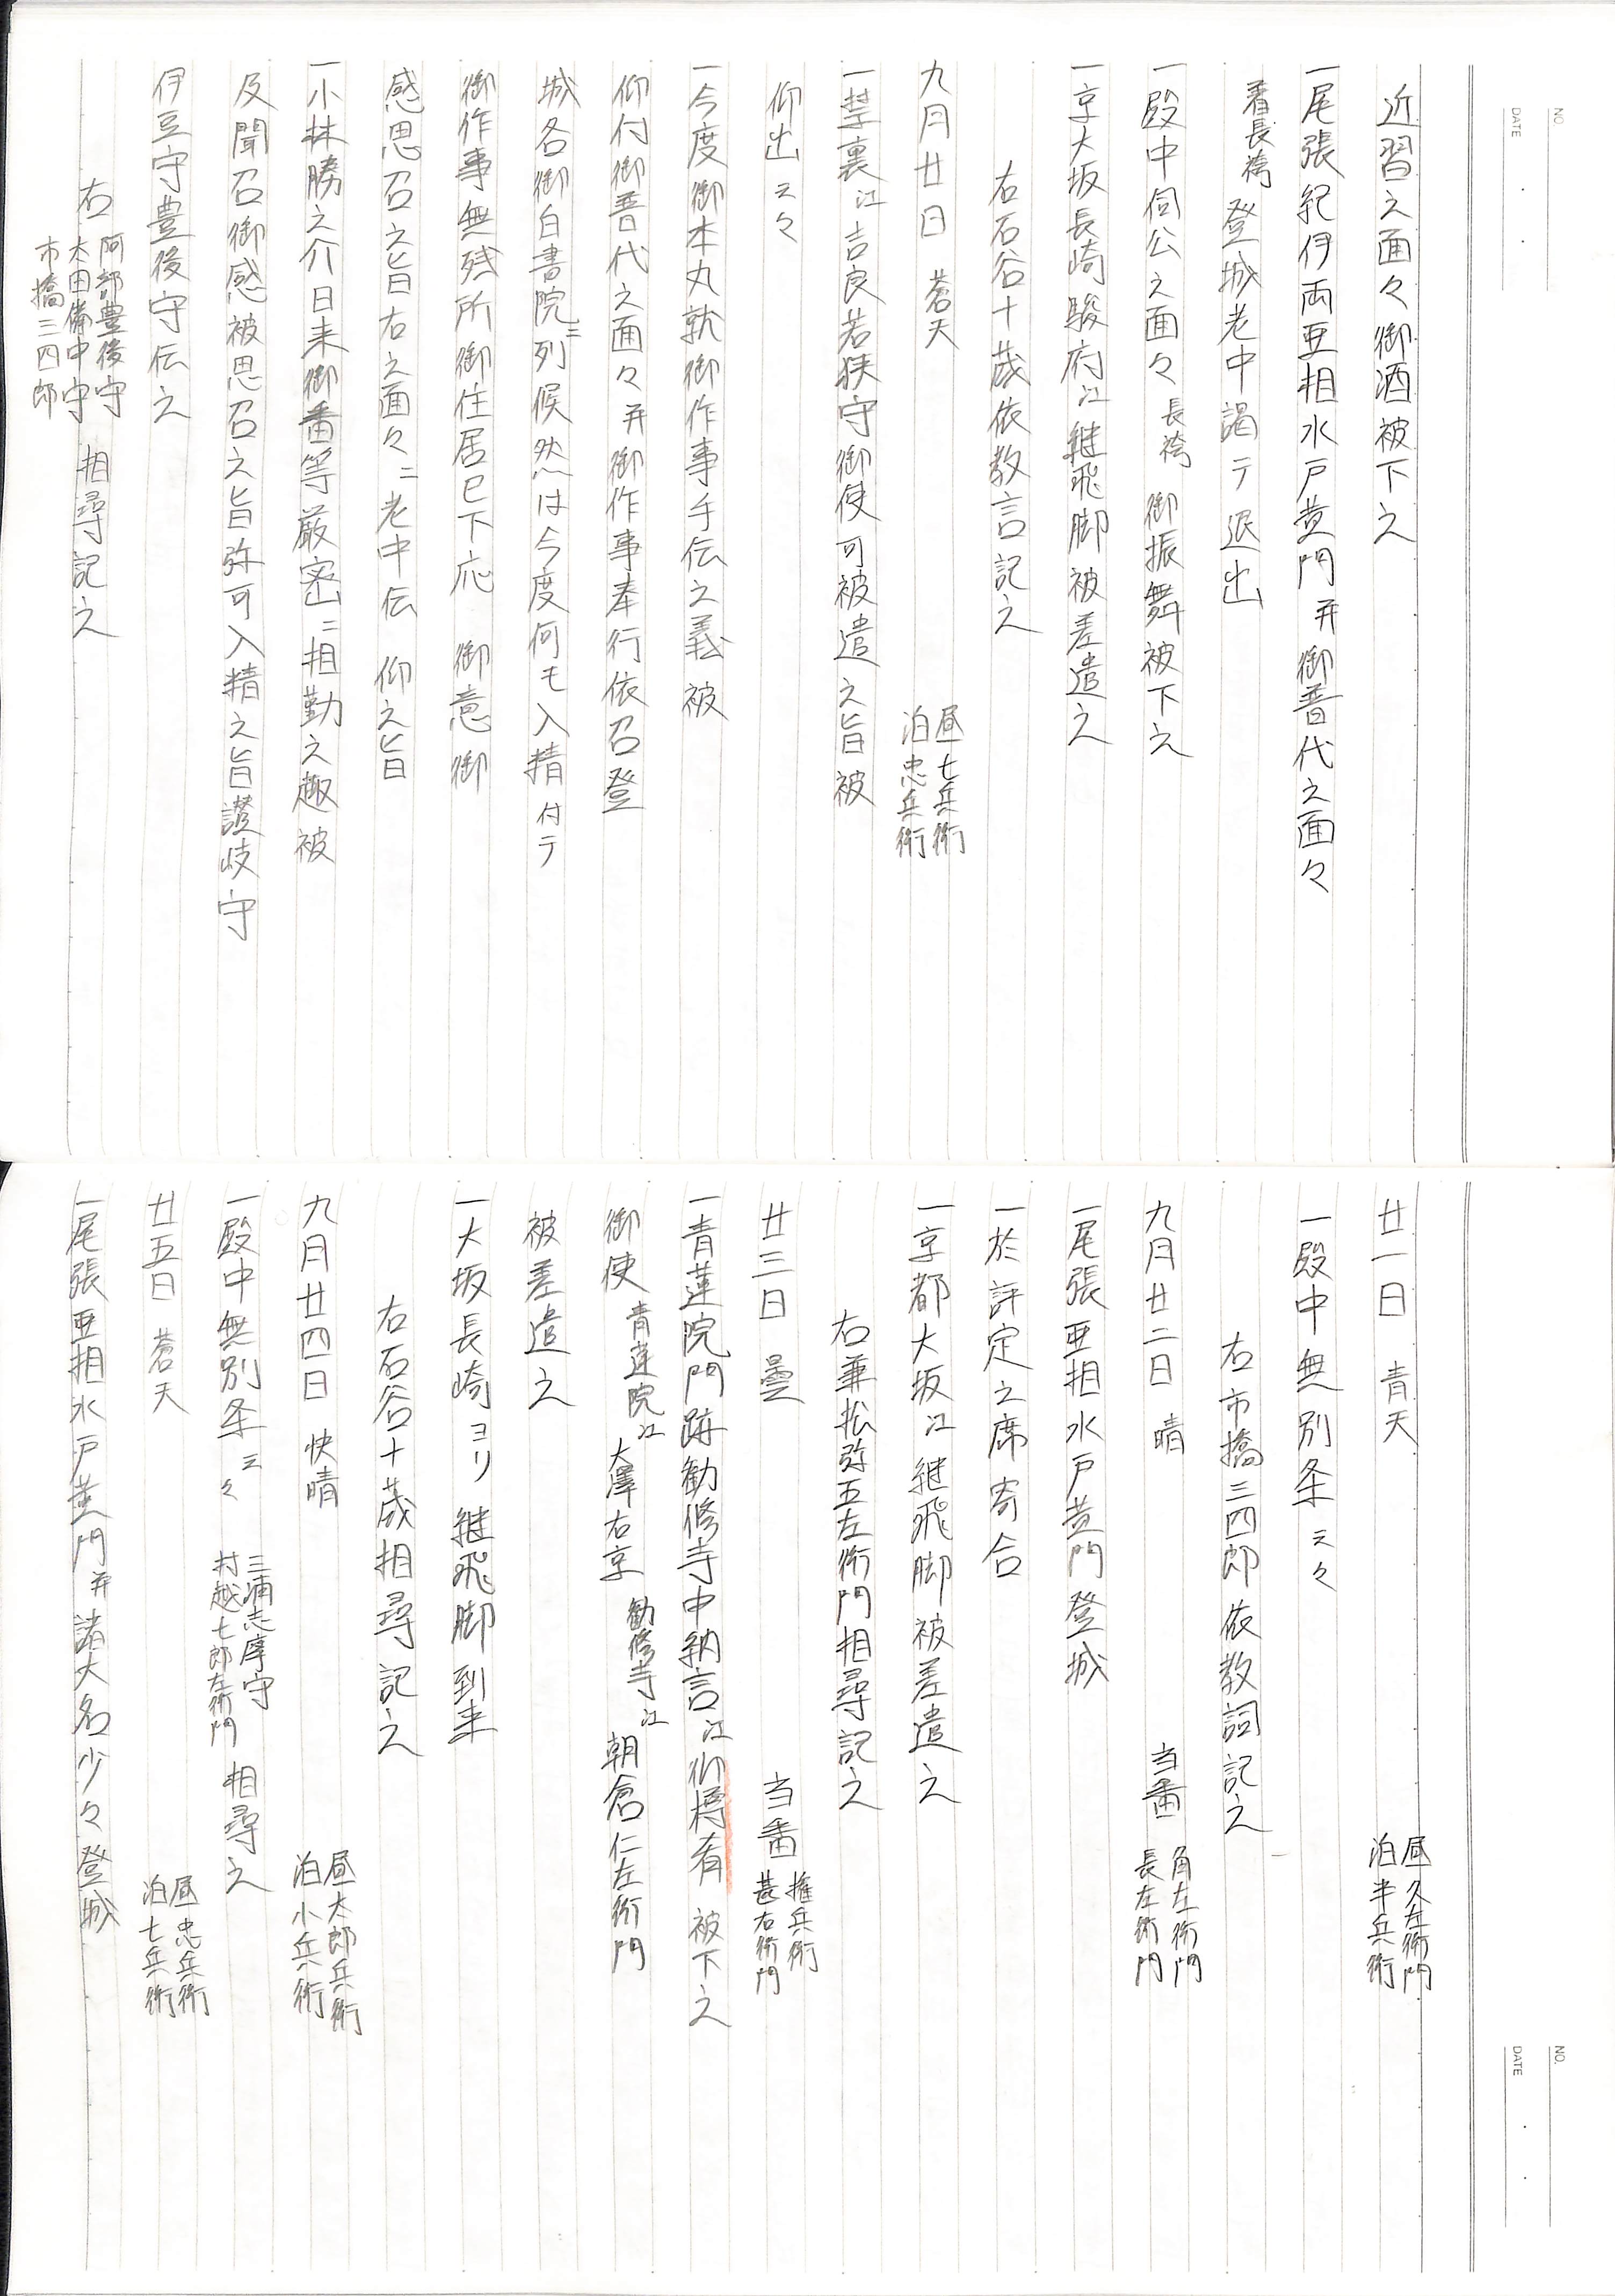 NO.
DATE
近習之面々御酒被下之
一尾張紀伊両亜相水戸黄門并御普代之面々
着長袴登城老中謁テ退出
一殿中伺公之面々長袴御振舞被下之
一京大坂長崎駿府江継飛脚被差遣之
右石谷十蔵依教言記之
九月廿日 蒼天 昼七兵衛 泊忠兵衛
一禁裏江吉良若狭守御使可被遣之旨被
仰出云々
一今度御本丸就御作事手伝之義被
仰付御普代之面々并御作事奉行依召登
城各御白書院ニ列候然は今度何モ入精付テ
御作事無残所御住居已下応 御意御
感思召之旨右之面々ニ老中伝 仰之旨
一小林勝之介日来御番等厳密ニ相勤之趣被
及聞召御感被思召之旨弥可入精之旨讃岐守
伊豆守豊後守伝之
右 阿部豊後守 太田備中守 市橋三四郎 相尋記之
NO.
DATE
廿一日 青天 昼久左衛門 泊半兵衛
一殿中無別条云々
右市橋三四郎依教詞記之
九月廿二日 晴 当番 角左衛門 長左衛門
一尾張亜相水戸黄門登城
一於評定之席寄合
一京都大坂江継飛脚被差遣之
右兼松弥五左衛門相尋記之
廿三日 曇 当番 権兵衛 甚右衛門
一青蓮院門跡勧修寺中納言江御樽肴被下之
御使 青蓮院江 大澤右京 勧修寺江 朝倉仁左衛門
被差遣之
一大坂長崎ヨリ継飛脚到来
右石谷十蔵相尋記之
九月廿四日 快晴 昼太郎兵衛 泊小兵衛
一殿中無別条云々 三浦志摩守 村越七郎左衛門 相尋之
廿五日 蒼天 昼忠兵衛 泊七兵衛
一尾張亜相水戸黄門并諸大名少々登城